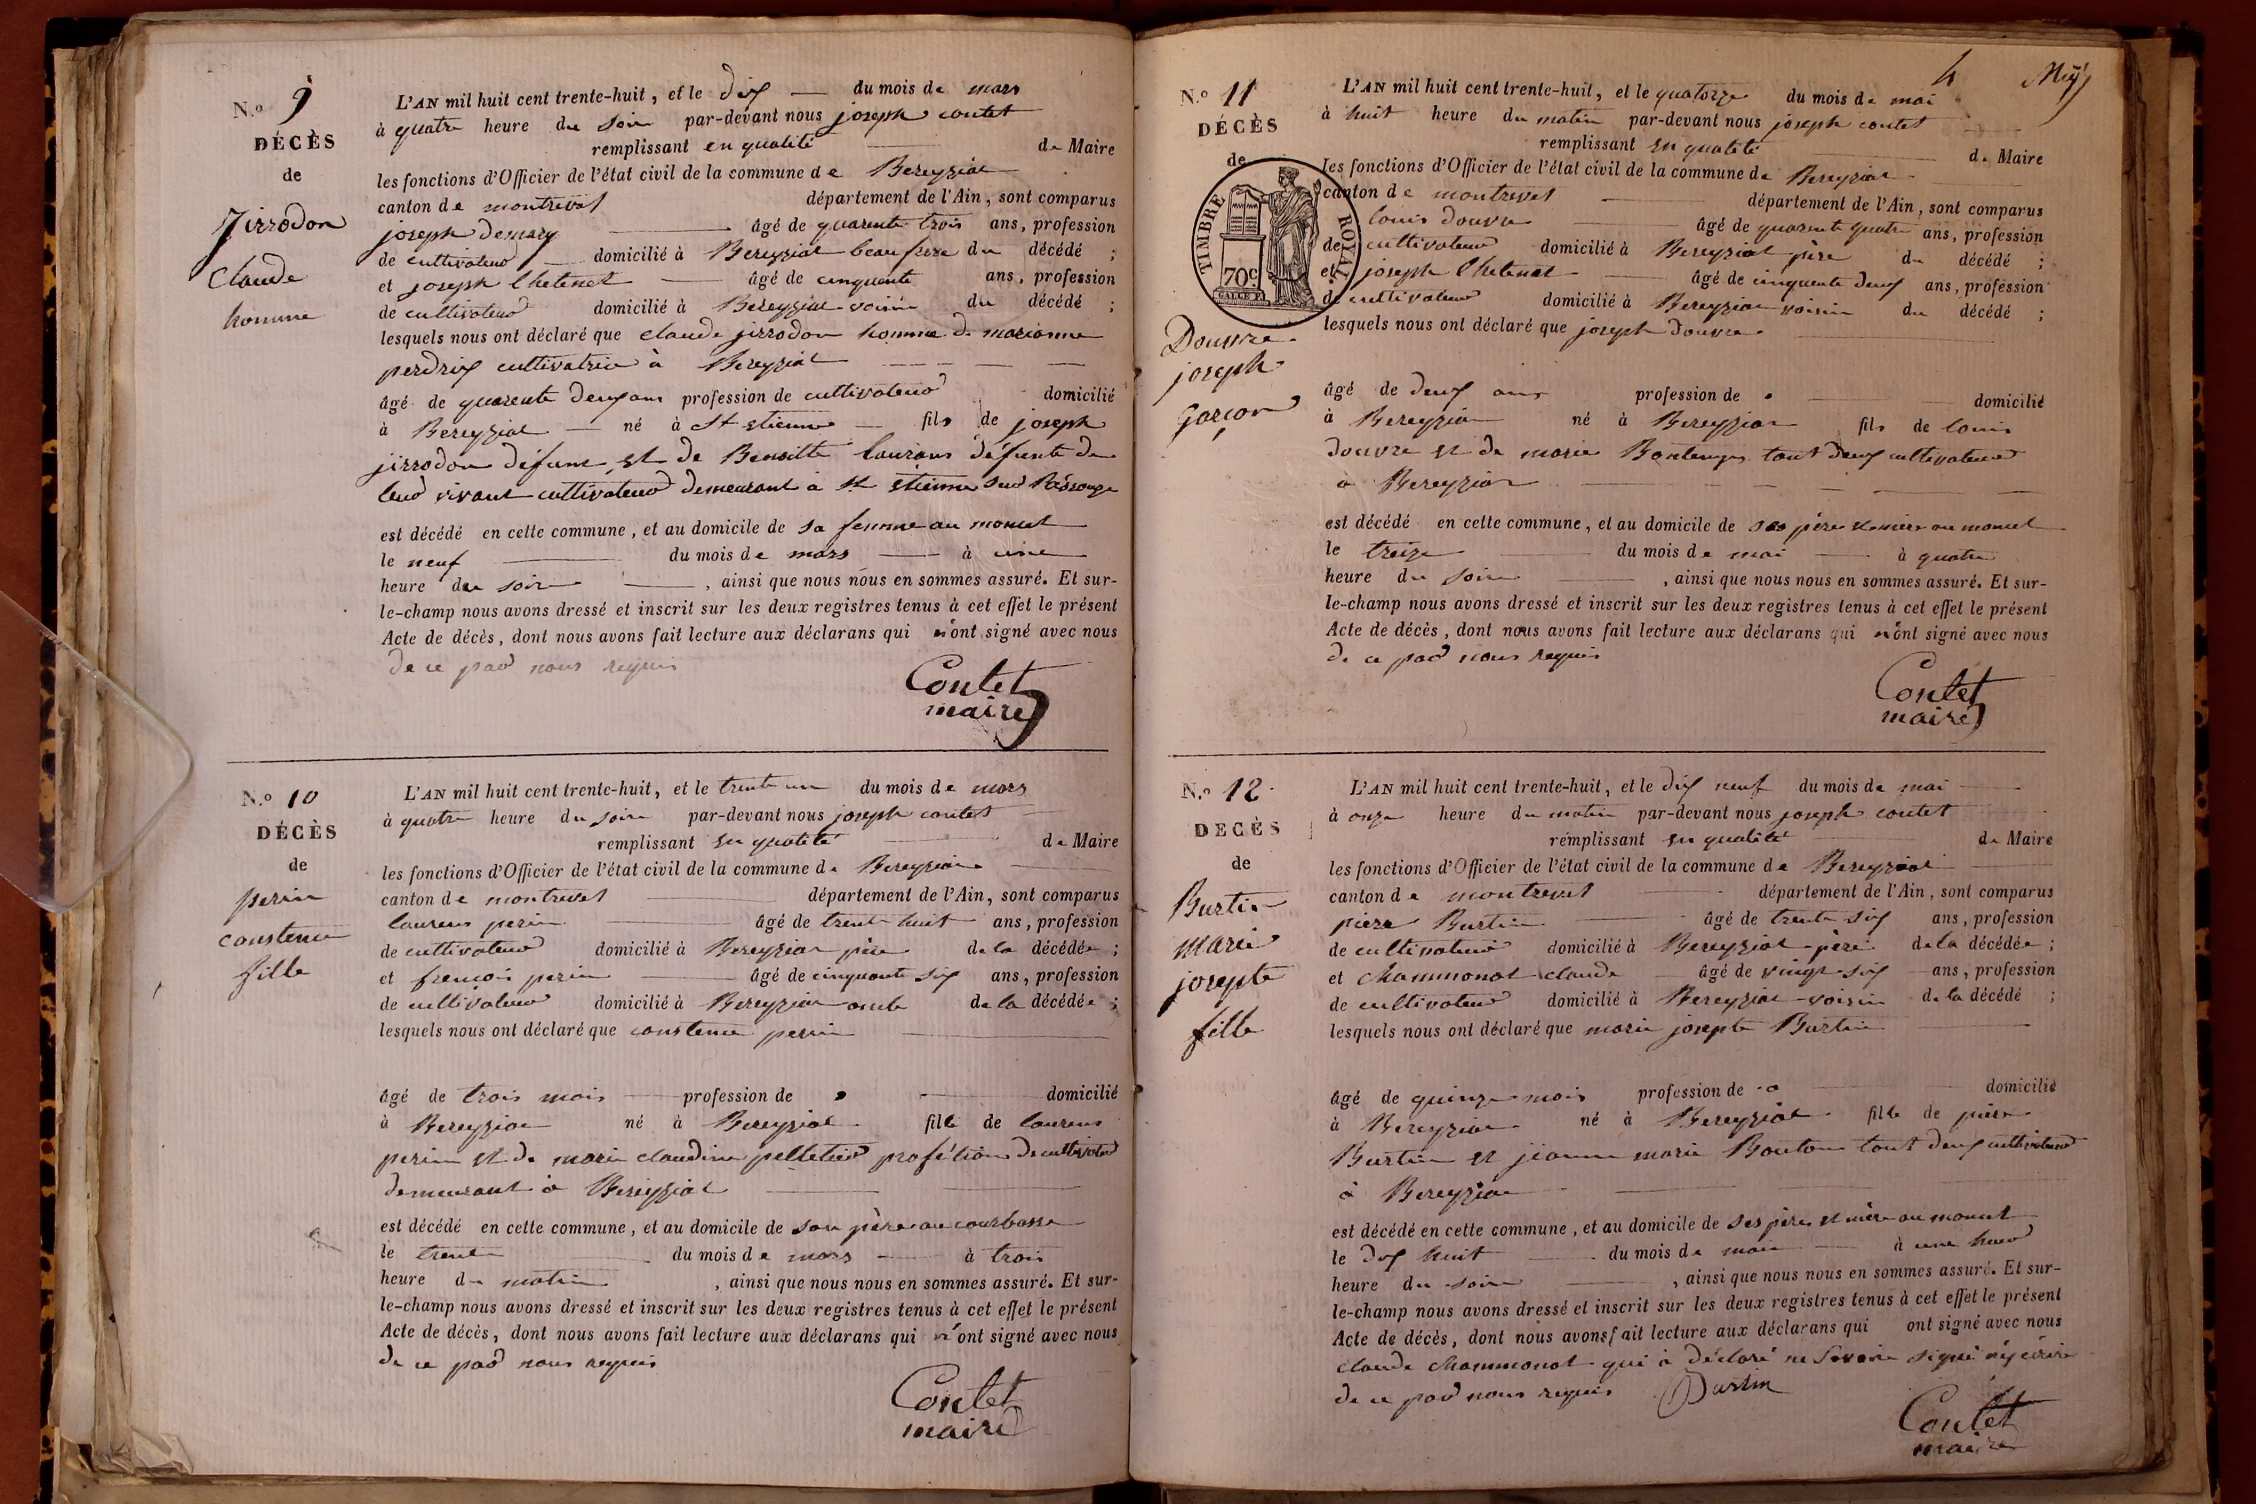 N.o 9
DÉCÈS
de
jirrodon
claude
homme
L'AN mil huit cent trente-huit, et le dix du mois de mars
à quatre heure du soir par-devant nous joseph contet
remplissant en qualité de Maire
les fonctions d'Officier de l'état civil de la commune de Bereyziat
canton de montrevel département de l'Ain, sont comparus
joseph demary âgé de quarente trois ans, profession
de cultivateur domicilié à Bereyziat beau frere du décédé ;
et joseph Chatenet âgé de cinquente ans, profession
de cultivateur domicilié à Bereyziat voisin du décédé ;
lesquels nous ont déclaré que claude jirrodon homme de marianne
perdrix cultivatrice à Bereyziat
âgé de quarente deux ans profession de cultivateur domicilié
à Bereyziat né à St etienne fils de joseph
jirrodon défunt et de Benoitte laurans défunte de
leur vivant cultivateur demeurant à st etienne sur
est décédé en cette commune, et au domicile de sa femme au moncet
le neuf du mois de mars à une
heure du soir , ainsi que nous nous en sommes assuré. Et sur-
le-champ nous avons dressé et inscrit sur les deux registres tenus à cet effet le présent
Acte de décès, dont nous avons fait lecture aux déclarans qui n'ont signé avec nous
de ce par nous requis
Contet
maire
N.o 10
DÉCÈS
de
perin
constence
fille
L'AN mil huit cent trente-huit, et le trente un du mois de mars
à quatre heure du soir par-devant nous joseph contet
remplissant en qualité de Maire
les fonctions d'Officier de l'état civil de la commune de Bereyziat
canton de montrevel département de l'Ain, sont comparus
laurens perin âgé de trente huit ans, profession
de cultivateur domicilié à Bereyziat père de la décédée ;
et francois perin âgé de cinquante six ans, profession
de cultivateur domicilié à Bereyziat oncle de la décédée ;
lesquels nous ont déclaré que constence perin
âgé de trois mois profession de domicilié
à Bereyziat né à Bereyziat fille de laurens
perin et de marie claudine pelletier profétion de cultivateur
demeurant à Bereyziat
est décédé en cette commune, et au domicile de son père au courbasse
le trente du mois de mars à trois
heure du matin , ainsi que nous nous en sommes assuré. Et sur-
le-champ nous avons dressé et inscrit sur les deux registres tenus à cet effet le présent
Acte de décès, dont nous avons fait lecture aux déclarans qui n'ont signé avec nous
de ce par nous requis
Contet
maire
4
N.o 11
DÉCÈS
de
TIMBRE ROYAL
70c
Douvre
joseph
garçon
L'AN mil huit cent trente-huit, et le quatorze du mois de mai
à huit heure du matin par-devant nous joseph contet
remplissant en qualité de Maire
les fonctions d'Officier de l'état civil de la commune de Bereyziat
canton de montrevel département de l'Ain, sont comparus
louis douvre âgé de quarente quatre ans, profession
de cultivateur domicilié à Bereyziat père du décédé ;
et joseph Chatenet âgé de cinquente deux ans, profession
de cultivateur domicilié à Bereyziat voisin du décédé ;
lesquels nous ont déclaré que joseph douvre
âgé de deux ans profession de domicilié
à Bereyziat né à Bereyziat fils de louis
douvre et de marie tout deux cultivateur
à Bereyziat
est décédé en cette commune, et au domicile de ses père et mère au moncet
le treize du mois de mai à quatre
heure du soir , ainsi que nous nous en sommes assuré. Et sur-
le-champ nous avons dressé et inscrit sur les deux registres tenus à cet effet le présent
Acte de décès, dont nous avons fait lecture aux déclarans qui n'ont signé avec nous
de ce par nous requis
Contet
maire
N.o 12
DECÈS
de
Burtin
marie
josepte
fille
L'AN mil huit cent trente-huit, et le dix neuf du mois de mai
à onze heure du matin par-devant nous joseph contet
remplissant en qualité de Maire
les fonctions d'Officier de l'état civil de la commune de Bereyziat
canton de montrevel département de l'Ain, sont comparus
piere Burtin âgé de trente six ans, profession
de cultivateur domicilié à Bereyziat père de la décédée ;
et Chammonat claude âgé de vingt six ans, profession
de cultivateur domicilié à Bereyziat voisin de la décédé ;
lesquels nous ont déclaré que marie josepte Burtin
âgé de quinze mois profession de domicilié
à Bereyziat né à Bereyziat fille de piere
Burtin et jeanne marie Bouton tout deux cultivateur
à Bereyziat
est décédé en cette commune, et au domicile de ses père et mère au moncet
le dix huit du mois de mai à une heur
heure du soir , ainsi que nous nous en sommes assuré. Et sur-
le-champ nous avons dressé et inscrit sur les deux registres tenus à cet effet le présent
Acte de décès, dont nous avons fait lecture aux déclarans qui ont signé avec nous
claude Chammonat qui à déclaré ne savoir signé ny écrire
de ce par nous requis Burtin
Contet
maire